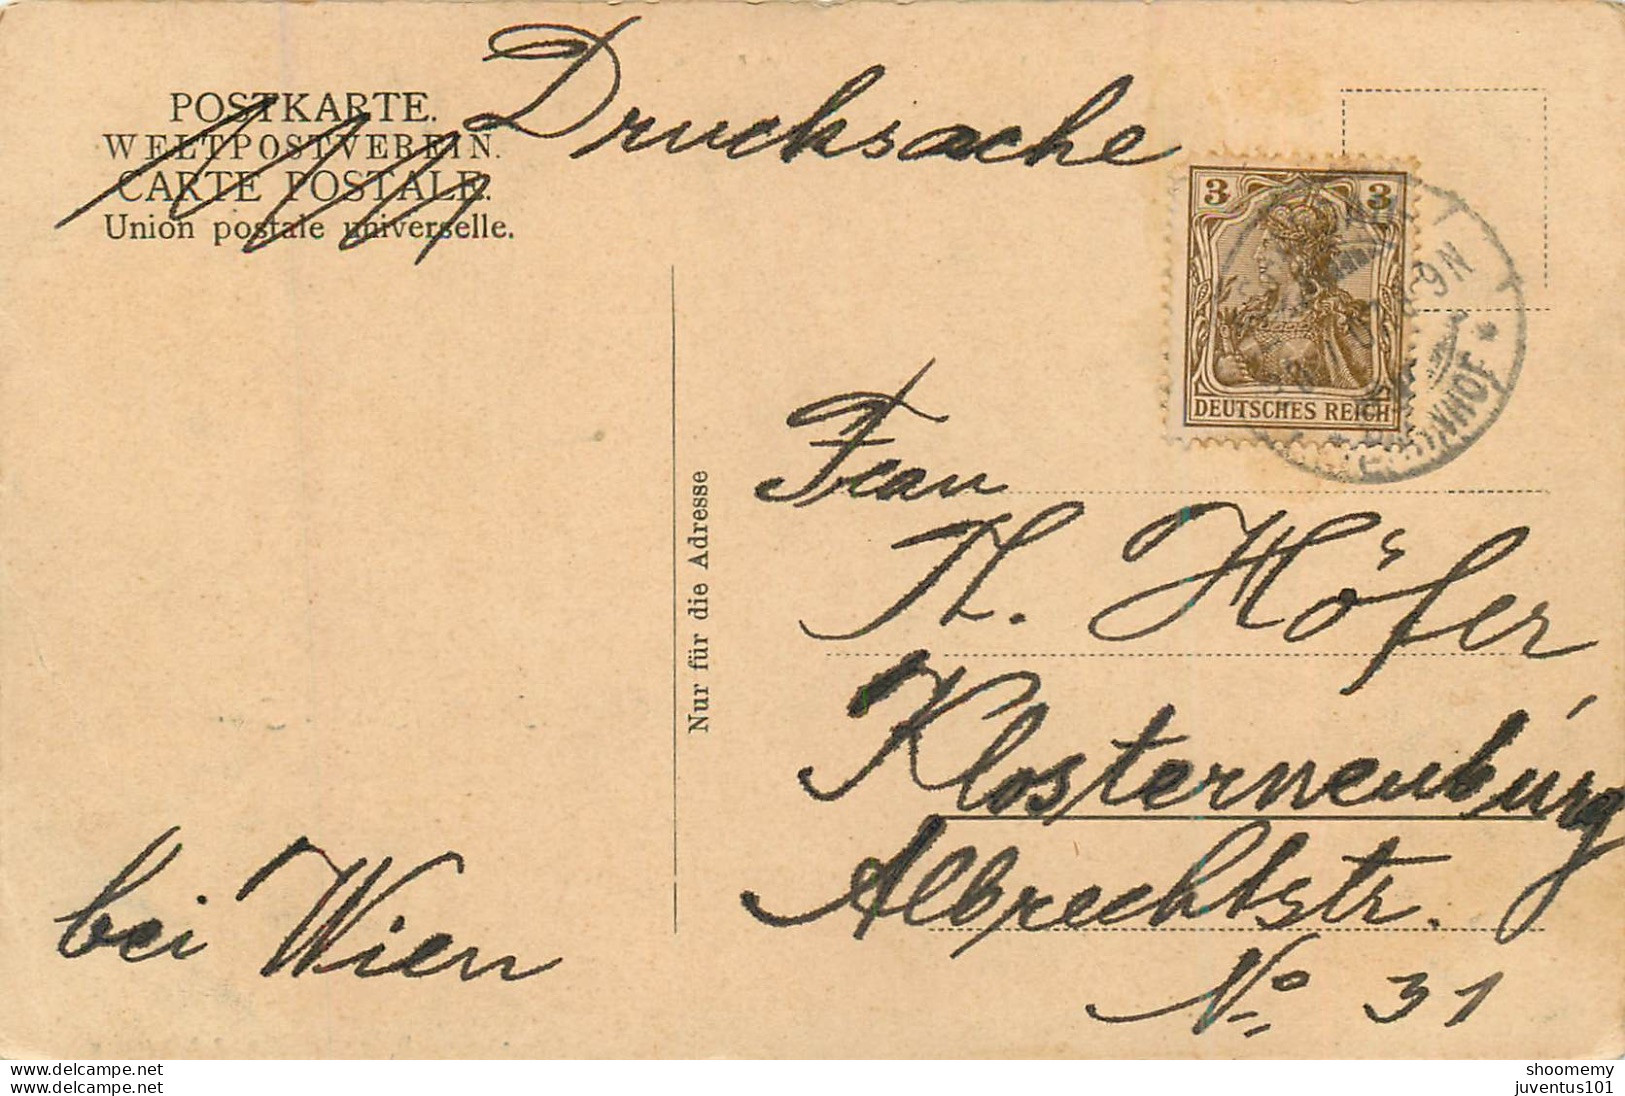 Drucksache
POSTKARTE.
WELTPOSTVEREIN.
CARTE POSTALE.
Union postale universelle.
3 3
DEUTSCHES REICH
8-9N
BAHNHOF *
Nur für die Adresse
Frau
Th. Höfer
Klosterneuburg
Albrechtstr.
No 31
bei Wien
www.delcampe.net
www.delcampe.net
shoomemy
juventus101